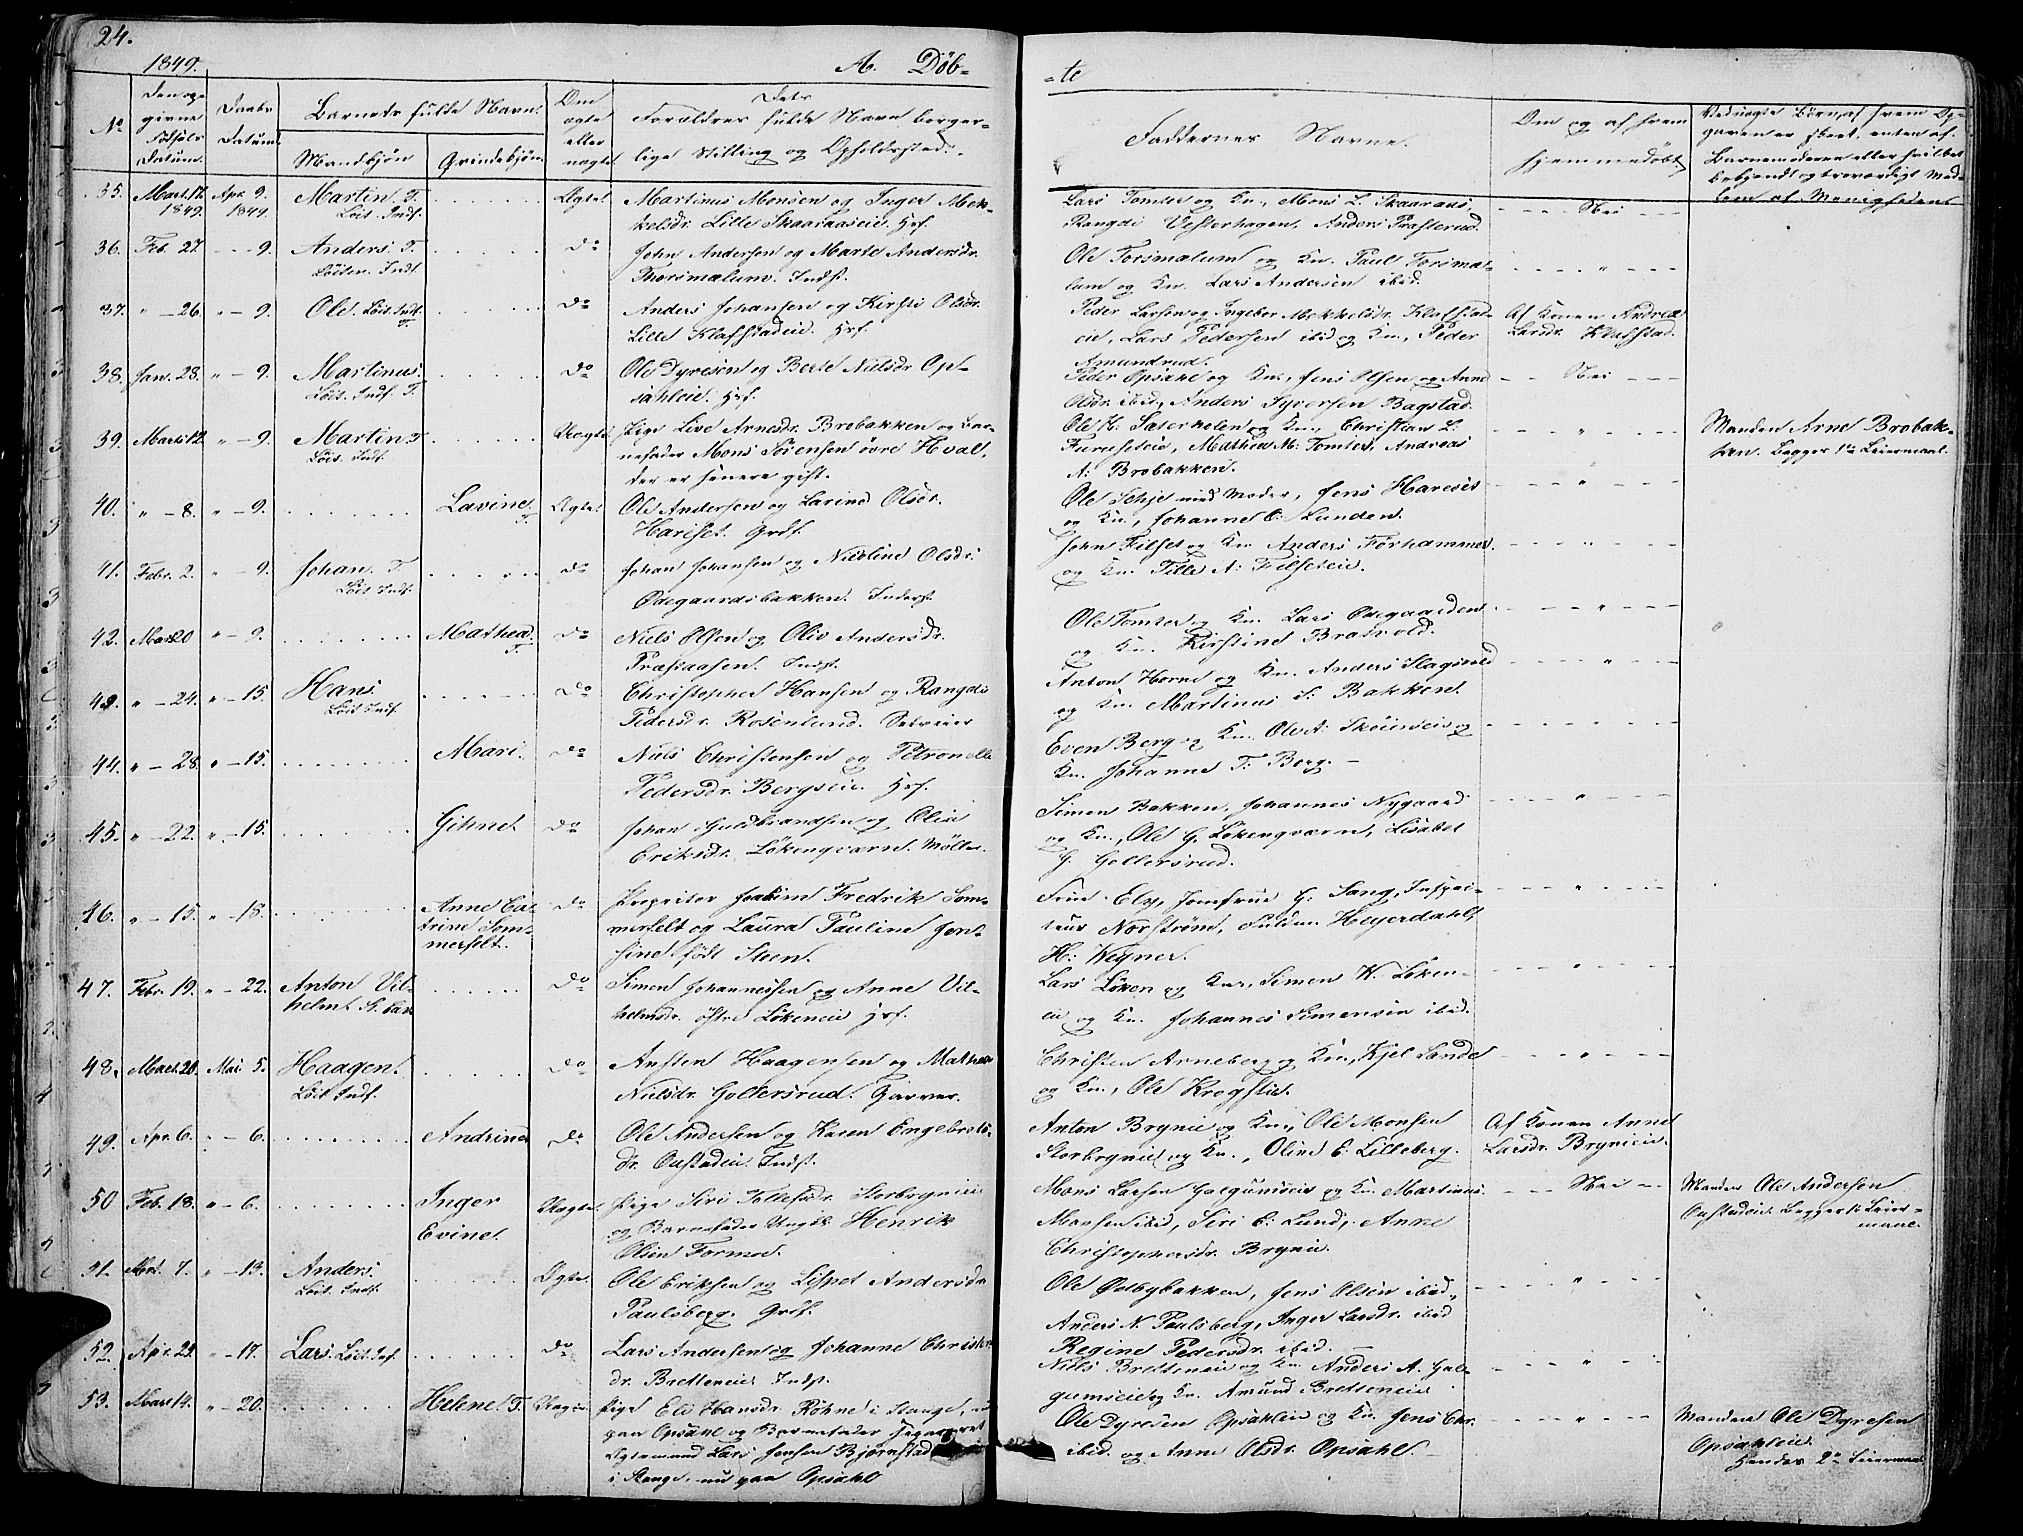 24.
1849.
A. Døb-
-te
No
Den op-
givne
Fødsels
Datum.
Daabs
Datum.
Barnets fulde Navn.
Mandkjøn
Qvindekjøn
Om
ægte
eller
uægte
Dets
Forældres fulde Navn borger-
lige Stilling og Opholdssted.
Faddernes Navne.
Om og af hvem
hjemmedøbt
35. Mart. 12. 1849. Apr. 9. 1849. Martin. T. Løit. Indf. Ægte. Martinus Monsen og Inger Mek-
kelsdr. Lille Skaaraaseie. Hrf.
Lars Tomter og Kn., Mons L. Skaaraas,
Rangdi Vesterhagen, Anders Præsterud.
Nei
36. Feb. 27. - - 9. Anders. T. Løiten. Indf. do John Andersen og Marte Andersdr.
Thorsmalum. Indst.
Ole Torsmalum og Kn. Paul Torsma-
lum og Kn. Lars Andersen ibid.
37. " - 26. " - 9. Ole. Løit. Indf. T. do Anders Johansen og Kirsti Olsdr.
Lille Klafstadeie. Hrf.
Peder Larsen og Ingebor Mekkelsdr. Klafstad-
eie, Lars Pedersen ibid og Kn., Peder
Amundrud.
Af Konen Andrea
Larsdr. Klafstad.
38. Jan. 28. " - 9. Martinus. Løit. Indf. T. do Ole Dyresen og Berte Nielsdr Op-
sahleie. Hrf.
Peder Opsahl og Kn., Jens Olsen og Anne
Olsdr. ibid., Anders Syversen Bagstad.
Nei
39. Marts 12. " - 9. Martin. T. Løit. Indf. Uægte. Pige Live Arnesdr. Brobakken og Bar-
nefader Mons Sørensen øvre Hval,
der er senere gift.
Ole H. Sæterholen og Kn., Christian L.
Furuseteie, Mathea M. Tomter, Andreas
A. Brobakken.
Manden Arne Brobak-
ken. Begges 1te Leiermaal.
40. " - 8. " - 9. Lavine. T. Ægte. Ole Andersen og Larine Olsdr.
Hariset. Grdf.
Ole Schje med Moder, Jens Hareset
og Kn., Johanne E. Lunden.
41. Febr. 2. " - 9. Johan. T. Løit. Indf. do Johan Johansen og Nicoline Olsdr.
Ødegaardsbakken. Inderst.
John Filset og Kn. Anders Forhammer
og Kn. Tille A. Filseteie.
42. Mart 20 " - 9. Mathea. T. do Niels Olsen og Oliv Andersdr.
Præstaasen. Indst.
Ole Tomter og Kn. Lars Ødegaarden
og Kn. Kirstine Bratvold.
43. " - 24. " - 15. Hans. Løit Indf. do Christopher Hansen og Rangdi
Pedersdr. Rosenlund. Selveier
Anton Horne og Kn. Anders Slagsvold
og Kn. Martinus S. Bakken.
44. " - 28. " - 15. Mari. do Niels Christensen og Petronelle
Pedersdr. Bergseie. Hrf.
Even Berg og Kn. Ole A. Skøienseie og
Kn. Johanne T. Berg. -
45. " - 22. " - 15. Gihne. do Johan Guldbrandsen og Oline
Eriksdr. Løkenqværn. Møller.
Simen Bakken, Johannes Nygaard
og Kn., Ole G. Løkenqværn, Lisabet
G. Gollersrud.
46. " - 15. " - 18. Anne Ca-
trine Som-
merfelt. do Proprietær Joakim Fredrik Som-
merfelt og Laura Pauline Jen-
sine født Steen.
Frue Ely, Jomfrue G. Sang, Inspec-
teur Norstrøm, Fuldm. Heyerdahl,
H. Wegner.
47. Febr. 19. " - 22. Anton Vil-
helm. do Simen Johannessen og Anne Vil-
helmsdr. østre Løkeneie Hrf.
Lars Løken og Kn., Simen W. Løken-
eie og Kn. Johannes Simensen ibid.
48. Mart. 20. Mai 5. Haagen. Løit. Indf. do Austen Haagensen og Mathea
Nielsdr. Gollersrud. Garver.
Christen Arneberg og Kn., Kjel Sande
og Kn., Ole Krogstie.
49. Apr. 6. " - 6. Andrine do Ole Andersen og Karen Engebrets-
dr. Oustadeie. Indst.
Anton Brynie og Kn., Ole Monsen
Storbrynie og Kn., Oline E. Lilleberg.
Af Konen Anne
Larsdr. Brynieie.
50 Feb. 13. " - 6. Inger
Evine. Uægte. Pige Siri Tollefsdr. Storbrynieie
og Barnefader Ungk. Henrik
Olsen Formoe.
Mons Larsen Galgumseie og Kn. Martinus
Monsen ibid, Siri E. Lund, Anne
Christophersdr. Brynie.
Nei
Manden Ole Andersen
Oustadeie. Begges 1te Leier-
maal.
51. Mrt. 7. " - 13. Anders. Løit. Indf. Ægte. Ole Eriksen og Lispet Andersdr.
Paulsberg. Grdf.
Ole Østbybakken, Jens Olsen ibid.,
Anders N. Paulsberg, Inger Larsdr. ibid
Regine Pedersdr. ibid. -
52. Apr. 29. " - 17. Lars. Løit. Inf. do Lars Andersen og Johanne Christens-
dr. Bretteneie. Indst.
Niels Bretteneie og Kn. Anders A. Gal-
gumseie og Kn. Amund Bretteneie
53. Mart 14. " - 20. Helene. T. Uægte Pige Eli Hansdr. Røhne i Stange, nu
paa Opsahl og Barnefader separeret
Ægtemand Lars Jensen Bjørnstad
i Stange, nu paa Opsahl
Ole Dyresen Opsahleie og Kn. Jens Chr.
ibid. og Anne Olsdr. Opsahl. -
Manden Ole Dyresen
Opsahleie.
Hendes 2det Leiermaal.